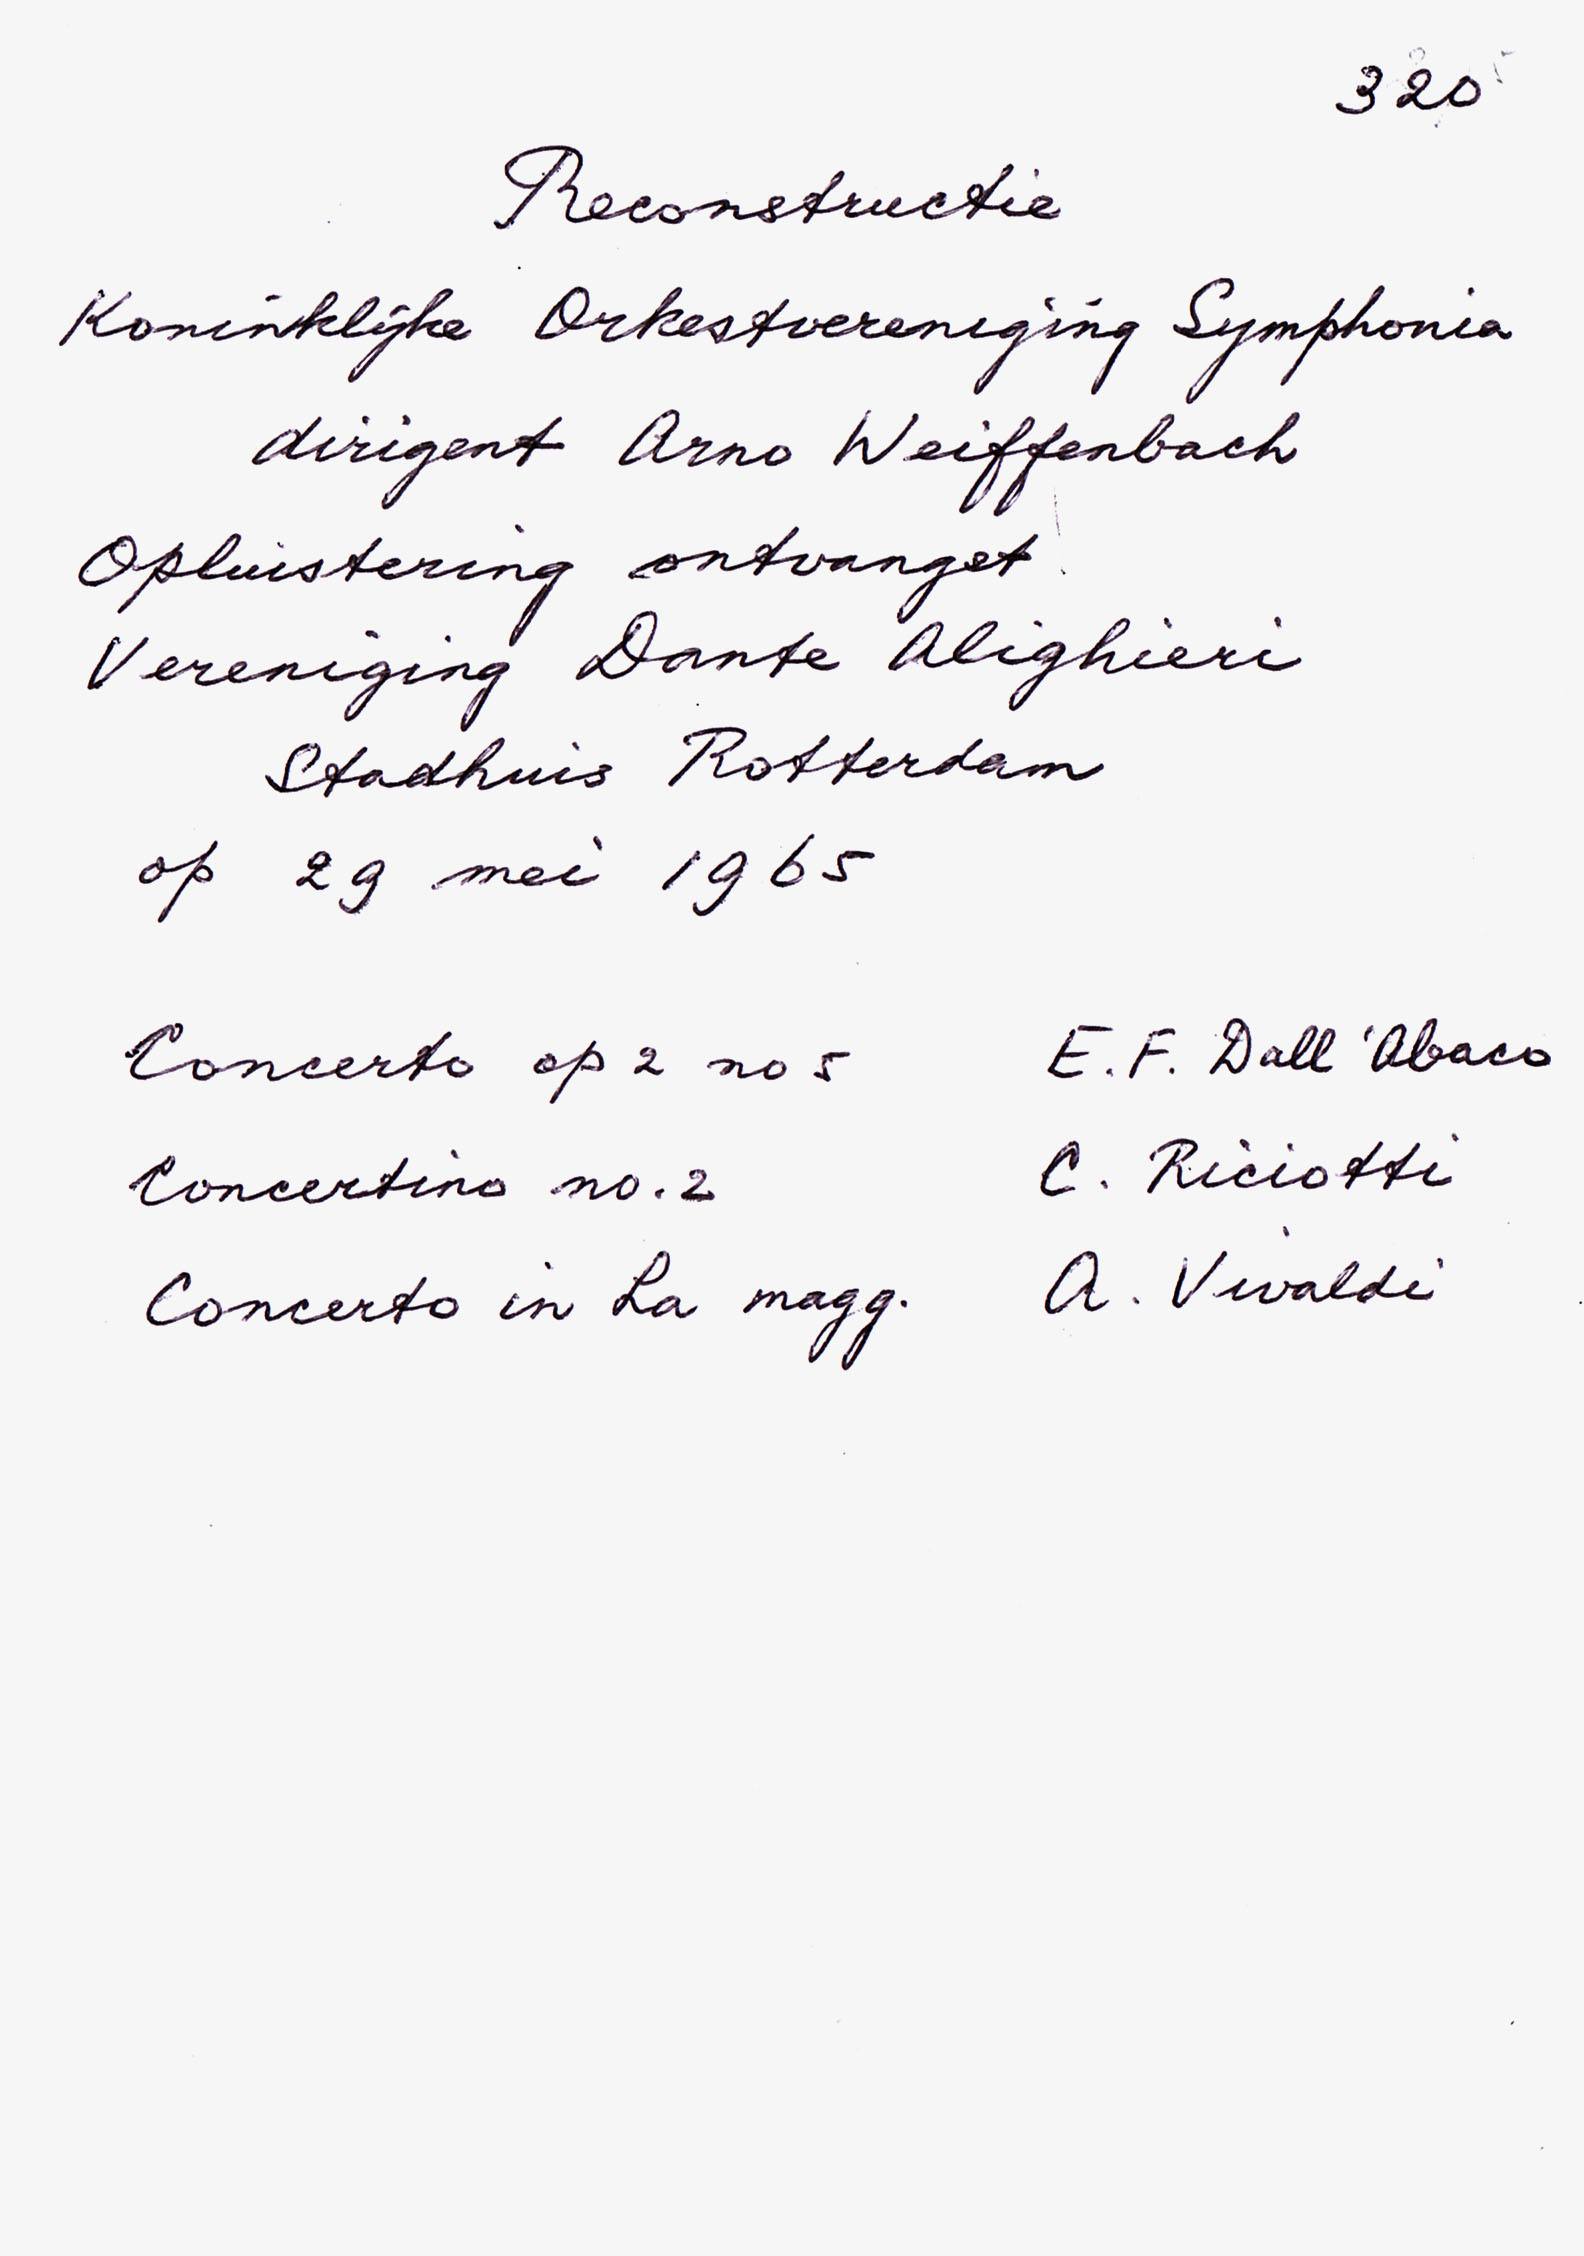 320
Reconstructie
Koninklijke Orkestvereniging Symphonia
dirigent Arno Weiffenbach
Opluistering ontvangst
Vereniging Dante Alighieri
Stadhuis Rotterdam
op 29 mei 1965
Concerto op 2 no 5 E. F. Dall'Abaco
Concertino no. 2 C. Riciotti
Concerto in La magg. A. Vivaldi